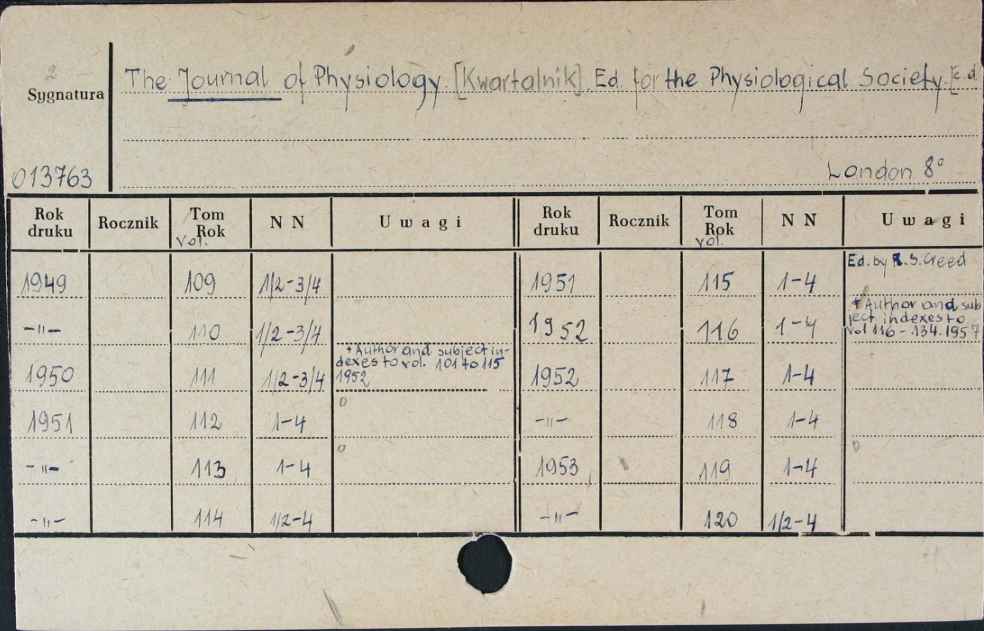 2
Sygnatura
The Journal of Physiology. [Kwartalnik]. Ed. for the Physiological Society. [c.d
013763
London 8°
Rok druku Rocznik Tom Rok vol. N N Uwagi Rok druku Rocznik Tom Rok vol. N N Uwagi
1949 109 1/2-3/4 1951 115 1-4 Ed. by R.S. Creed
-"- 110 1/2-3/4 1952 116 1-4 + Author and sub
ject indexes to
vol 116-134. 1957
1950 111 1/2-3/4 + Author and subject in-
dexes to vol. 101 to 115
1952 1952 117 1-4
1951 112 1-4 -"- 118 1-4
-"- 113 1-4 1953 119 1-4
-"- 114 1/2-4 -"- 120 1/2-4